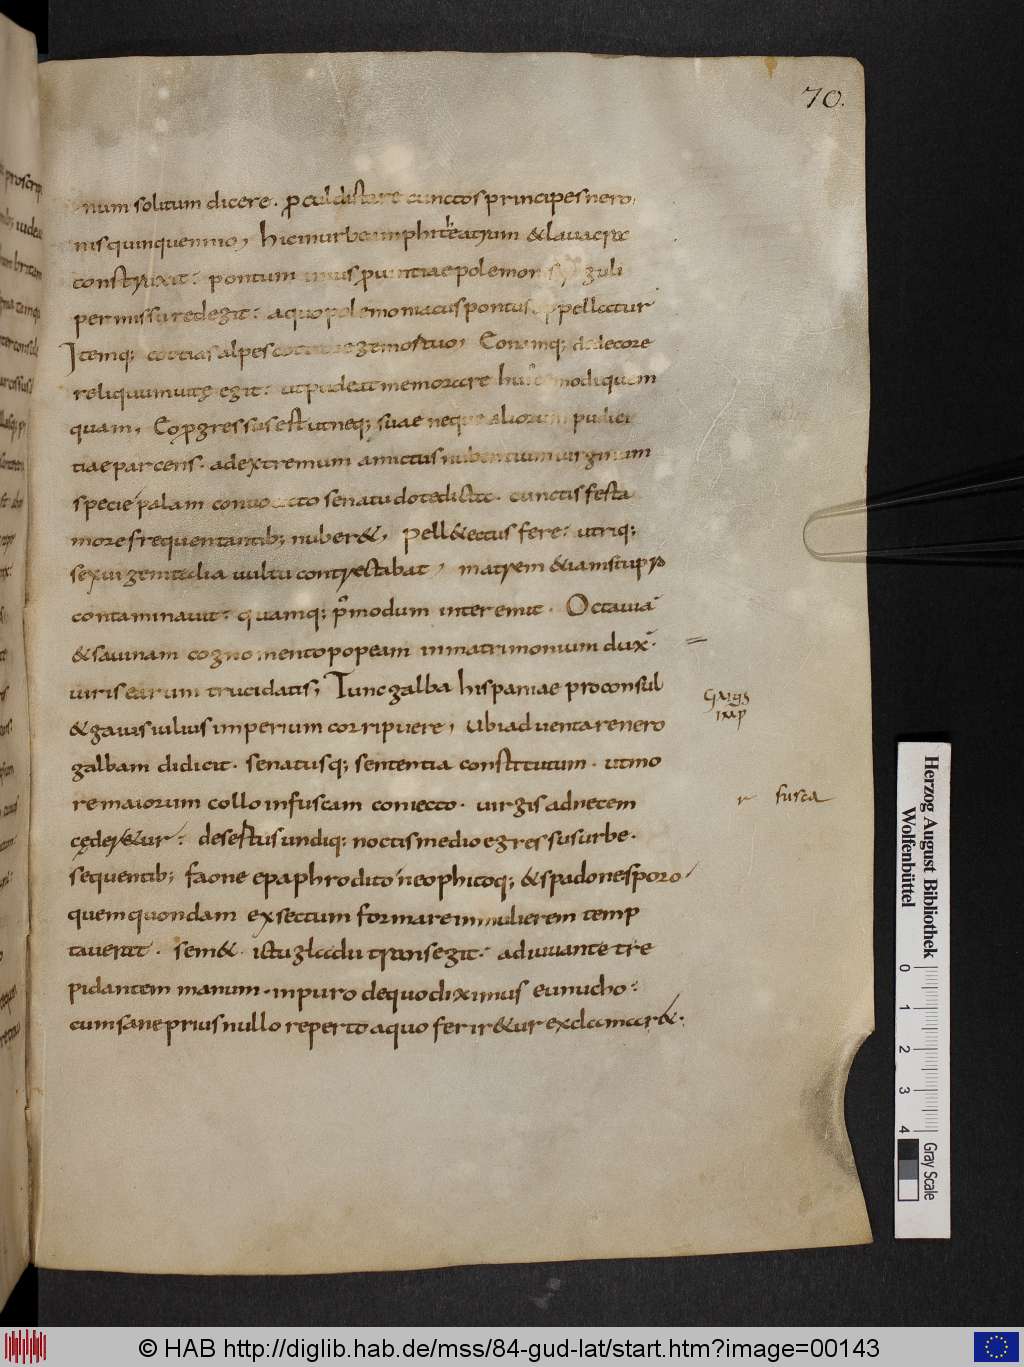 70.
num solitum dicere. ꝓcul distare cunctos principes nero
nis quinquennio, hic in urbe amphitheatrum & lauacra
construxit: pontum iuris ꝓuintiae polemonis reguli
permissu redegit: a quo polemoniacus pontus appellatur
Itemq; cottias alpes cottio rege mortuo, Eo namq; dedecore
reliquum uitę egit: ut pudeat memorare huiuscemodi quem
quam, Eo ꝓgressus est ut neq; suae neque aliorum pudici
tiae parcens. ad extremum amictus nubentium uirginum
specie palam conuocato senatu dote dicta. cunctis festa
more frequentantib; nuber&, pell& tectus fere: utriq;
sexui genitalia uultu contrectabat, matrem & iam stupro
contaminauit: quamq; p̄modum interemit. Octauiā
& sauinam cognomento popeam in matrimonium dux̄.
uiris earum trucidatis; Tunc galba hispaniae proconsul
& gaius iulius imperium corripuere, Ubi aduentare nero
galbam didicit. senatusq; sententia constitutum. ut mo
re maiorum collo in fuscam coniecto. uirgis ad necem
cęder&ur: desertus undiq; noctis medio egressus urbe.
sequentib; faone epaphrodito neophitoq; & spadone sporo
quem quondam exsectum formare in mulierem temp
tauerat. sem& ictu gladii transegit. adiuuante tre
pidantem manum. inpuro de quo diximus eunucho:
cum sane prius nullo reperto a quo ferir&ur exclamar&.
r fusca
Herzog August Bibliothek
Wolfenbüttel
0 1 2 3 4
Gray Scale
© HAB http://diglib.hab.de/mss/84-gud-lat/start.htm?image=00143